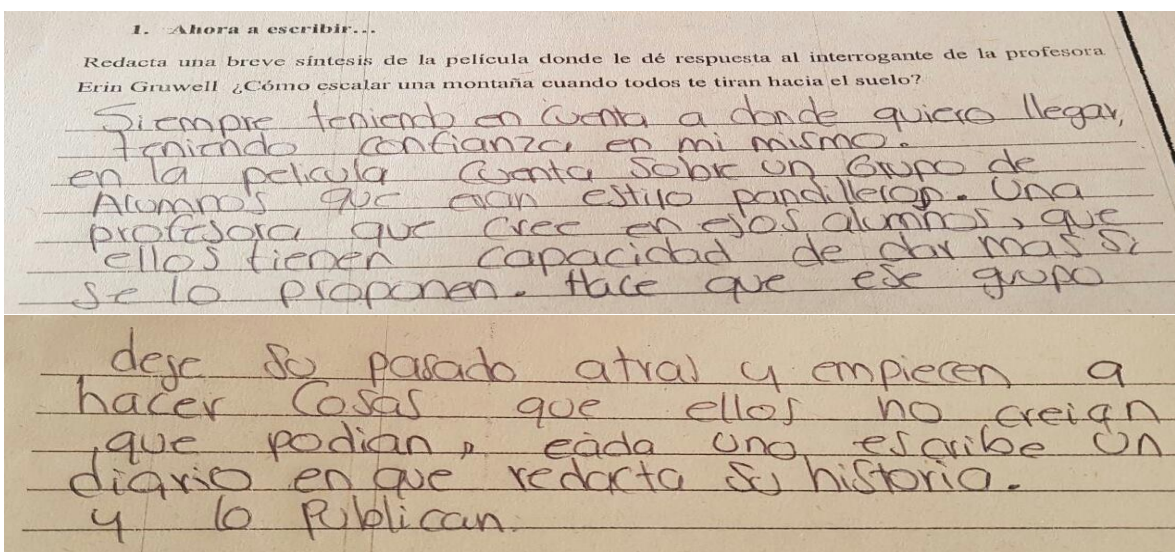 1. Ahora a escribir...
Redacta una breve síntesis de la película donde le dé respuesta al interrogante de la profesora
Erin Gruwell ¿Cómo escalar una montaña cuando todos te tiran hacia el suelo?
Siempre teniendo en cuenta a donde quiero llegar,
teniendo confianza en mi mismo.
en la pelicula cuenta sobre un Grupo de
Alumnos que eran estilo pandilleros. Una
profesora que cree en esos alumnos, que
ellos tienen capacidad de dar mas si
se lo proponen. Hace que ese grupo
deje su pasado atras y empiecen a
hacer cosas que ellos no creian
que podian, cada uno escribe un
diario en que redacta su historia.
y lo publican.